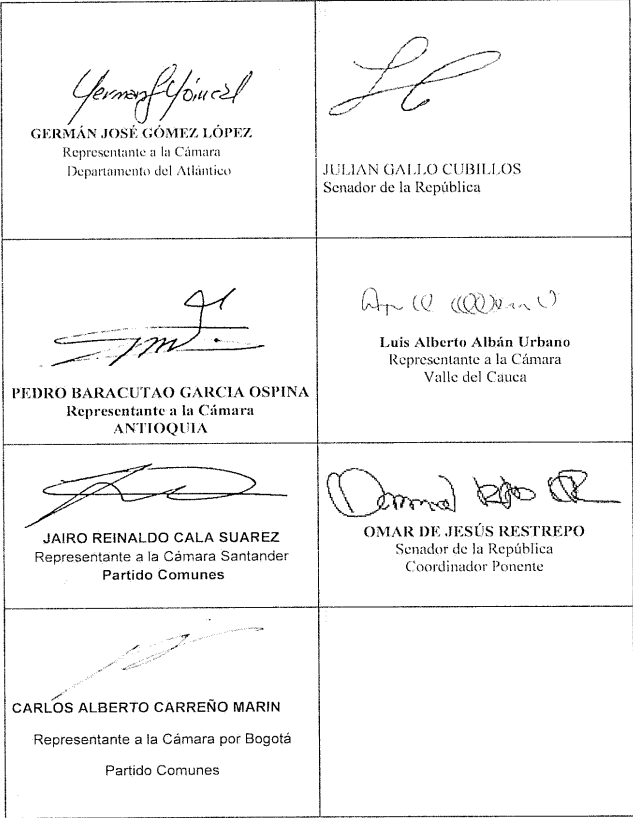 Germán Gómez L
GERMÁN JOSÉ GÓMEZ LÓPEZ
Representante a la Cámara
Departamento del Atlántico
JULIAN GALLO CUBILLOS
Senador de la República
PEDRO BARACUTAO GARCIA OSPINA
Representante a la Cámara
ANTIOQUIA
Luis Alberto Albán Urbano
Representante a la Cámara
Valle del Cauca
JAIRO REINALDO CALA SUAREZ
Representante a la Cámara Santander
Partido Comunes
OMAR DE JESÚS RESTREPO
Senador de la República
Coordinador Ponente
CARLOS ALBERTO CARREÑO MARIN
Representante a la Cámara por Bogotá
Partido Comunes